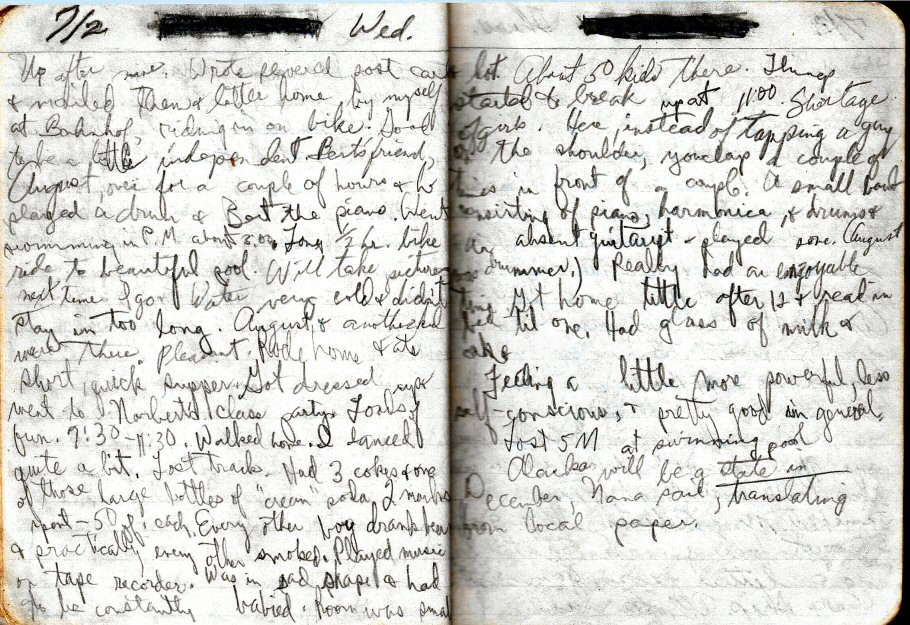 7/2 Wed.
Up after nine. Wrote several post cards
& mailed them & letter home by myself
at Bahnhof, riding in on bike. Good
to be a little independent. Bert's friend,
August, over for a couple of hours & he
played a drum & Bert the piano. Went
swimming in P.M. about 3:00. Long 1/2 hr. bike
ride to beautiful pool. Will take pictures
next time I go. Water very cold & didn't
stay in too long. August & another
were there. Pleasant. Rode home & ate
short, quick supper. Got dressed up &
went to Norbert's class party. Lots of
fun. 7:30-11:30. Walked home. I danced
quite a bit. Lost track. Had 3 cokes & one
of those large bottles of "cream" soda. 2 marks
spent - 50 pf. each. Every other boy drank beer
& practically every other smoked. Played music
on tape recorder. Was in sad shape & had
to be constantly babied. Room was small
lot. About 50 kids there. Things
started to break up at 11:00. Shortage
of girls. Here, instead of tapping a guy
on the shoulder, you clap a couple of
times in front of a couple. A small band
consisting of piano, harmonica, & drums &
an absent guitarist - played some. (August
drummer.) Really had an enjoyable
time. Got home little after 12 & read in
bed til one. Had glass of milk &
cake
Feeling a little more powerful, less
self-conscious, & pretty good in general.
Lost 5M at swimming pool
Alaska will be a state in
December, Nana said, translating
from local paper.